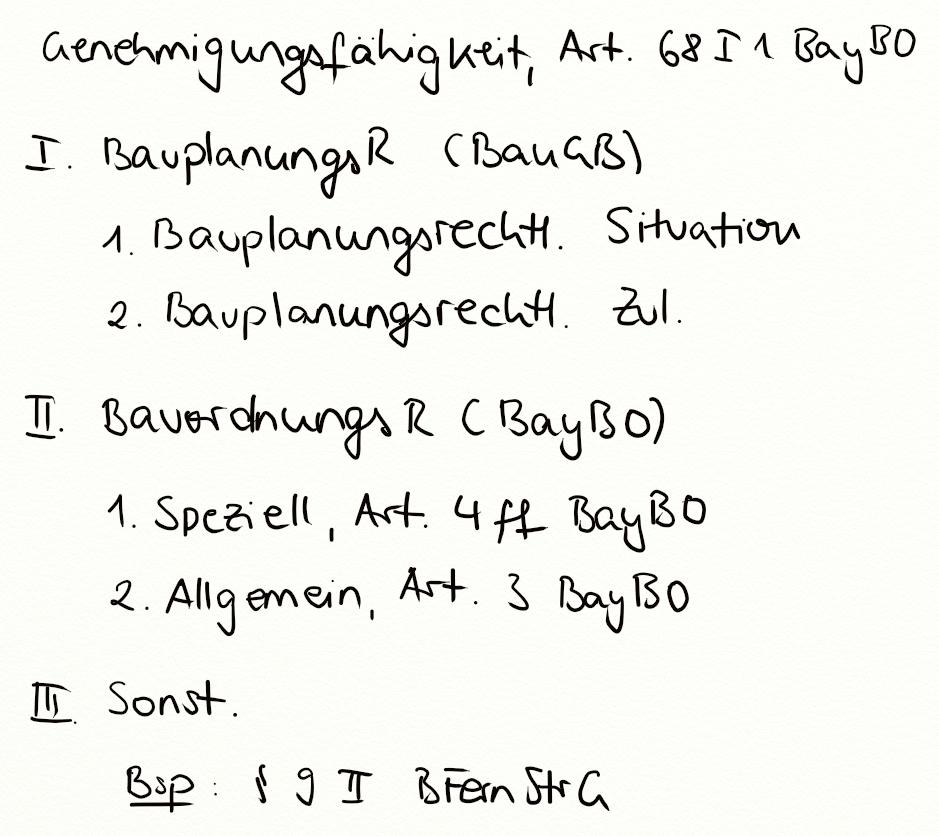 Genehmigungsfähigkeit, Art. 68 I 1 BayBO
I. BauplanungsR (BauGB)
1. Bauplanungsrechtl. Situation
2. Bauplanungsrechtl. Zul.
II. BauordnungsR (BayBO)
1. Speziell, Art. 4 ff BayBO
2. Allgemein, Art. 3 BayBO
III. Sonst.
Bsp: § 9 II BFernStrG